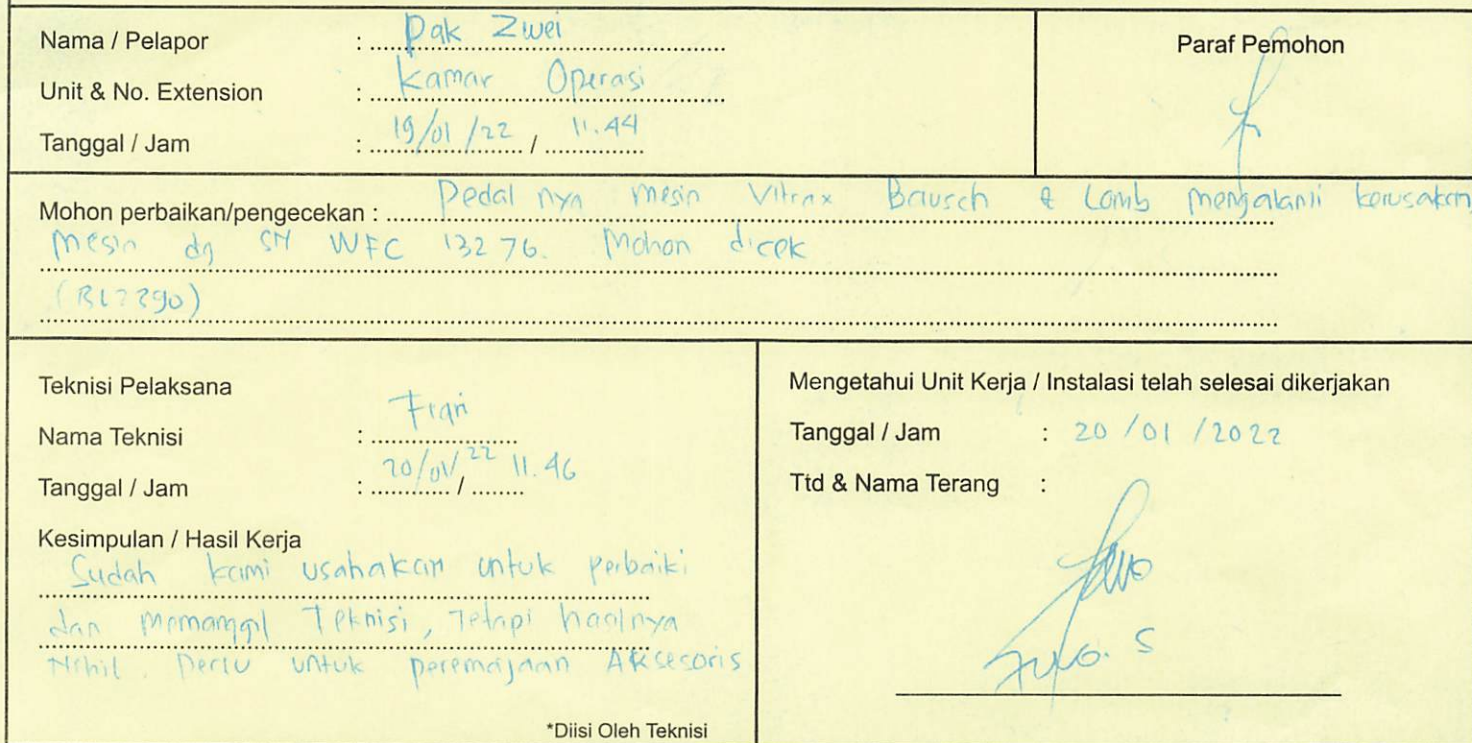 Nama / Pelapor : Pak Zwei
Paraf Pemohon
Unit & No. Extension : Kamar Operasi
Tanggal / Jam : 19/01/22 / 11.44
Mohon perbaikan/pengecekan : Pedal nya mesin Vitrax Bausch & Lomb mengalami kerusakan,
Mesin dg SN WFC 13276. Mohon dicek
Teknisi Pelaksana
Nama Teknisi :
Tanggal / Jam : 20/01/22 11.46
Kesimpulan / Hasil Kerja
Sudah kami usahakan untuk perbaiki
dan memanggil Teknisi, Tetapi hasilnya
Nihil. Perlu untuk peremajaan Aksesoris
*Diisi Oleh Teknisi
Mengetahui Unit Kerja / Instalasi telah selesai dikerjakan
Tanggal / Jam : 20/01/2022
Ttd & Nama Terang :